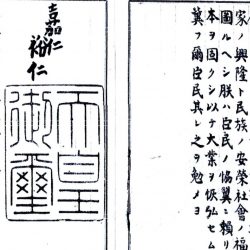 家ノ興隆ト民族ノ安榮社會ノ福
圖ルヘシ朕ハ臣民ノ協翼ニ頼リ
本ヲ固クシ以テ大業ヲ恢弘セム
冀フ爾臣民其レ之ヲ勉メヨ
嘉仁
裕仁
天皇
御璽